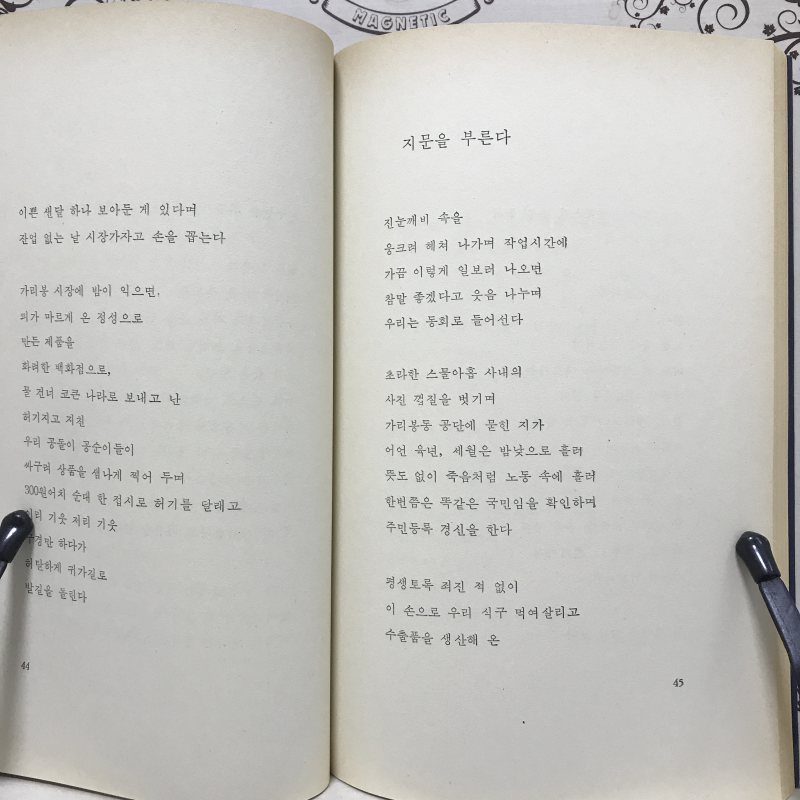 MAGNETIC
이쁜 쎈달 하나 보아둔 게 있다며
잔업 없는 날 시장가자고 손을 꼽는다
가리봉 시장에 밤이 익으면,
피가 마르게 온 정성으로
만든 제품을
화려한 백화점으로,
물 건너 코큰 나라로 보내고 난
허기지고 지친
우리 공돌이 공순이들이
싸구려 상품을 샘나게 찍어 두며
300원어치 순대 한 접시로 허기를 달래고
기웃 저리 기웃
하다가
허탈하게 귀가길로
발길을 돌린다
44
지문을 부른다
진눈깨비 속을
웅크려 헤쳐 나가며 작업시간에
가끔 이렇게 일보러 나오면
참말 좋겠다고 웃음 나누며
우리는 동회로 들어선다
초라한 스물아홉 사내의
사진 껍질을 벗기며
가리봉동 공단에 묻힌 지가
어언 육년, 세월은 밤낮으로 흘러
뜻도 없이 죽음처럼 노동 속에 흘러
한번쯤은 똑같은 국민임을 확인하며
주민등록 경신을 한다
평생토록 죄진 적 없이
이 손으로 우리 식구 먹여살리고
수출품을 생산해 온
45